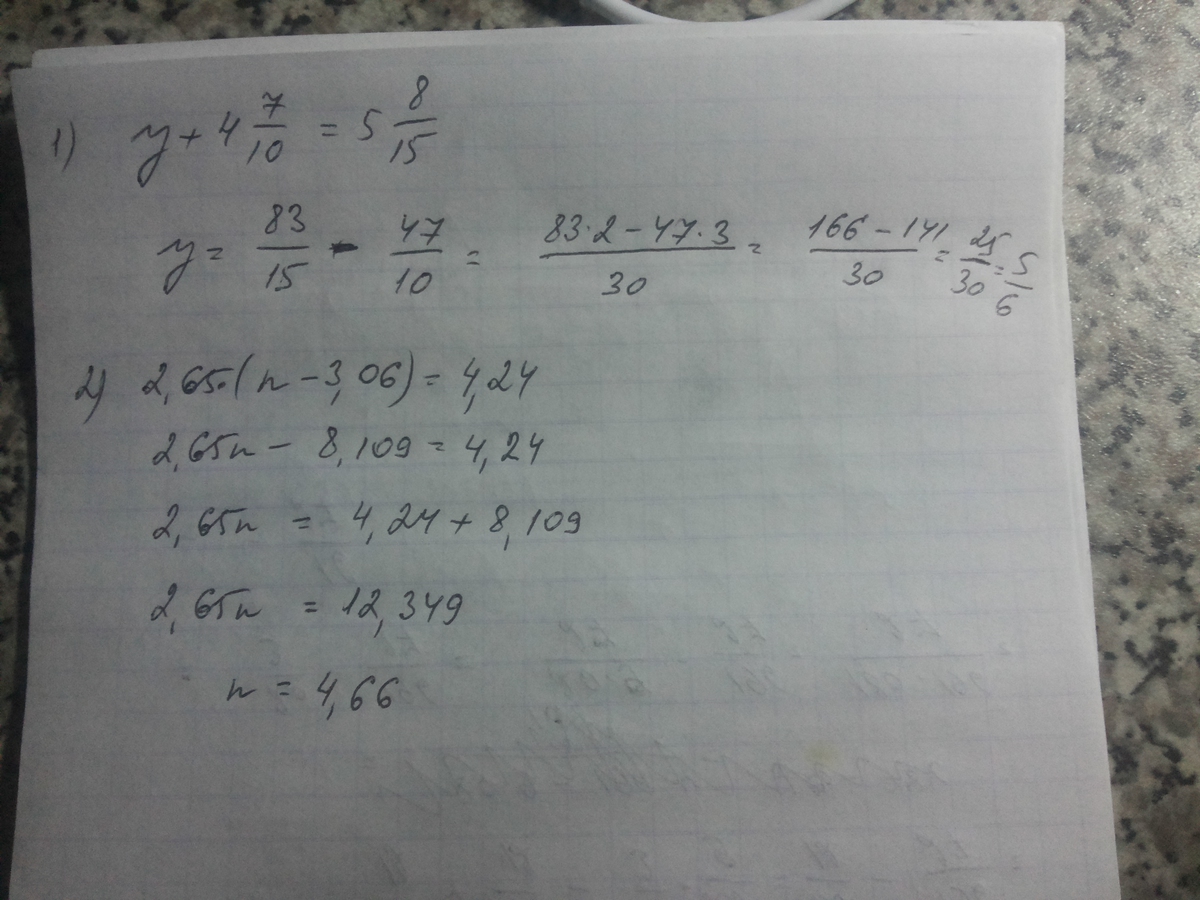 1) y + 4 7/10 = 5 8/15
y = 83/15 - 47/10 = (83·2 - 47·3)/30 = (166 - 141)/30 = 25/30 = 5/6
2) 2,65·(n - 3,06) = 4,24
2,65n - 8,109 = 4,24
2,65n = 4,24 + 8,109
2,65n = 12,349
n = 4,66